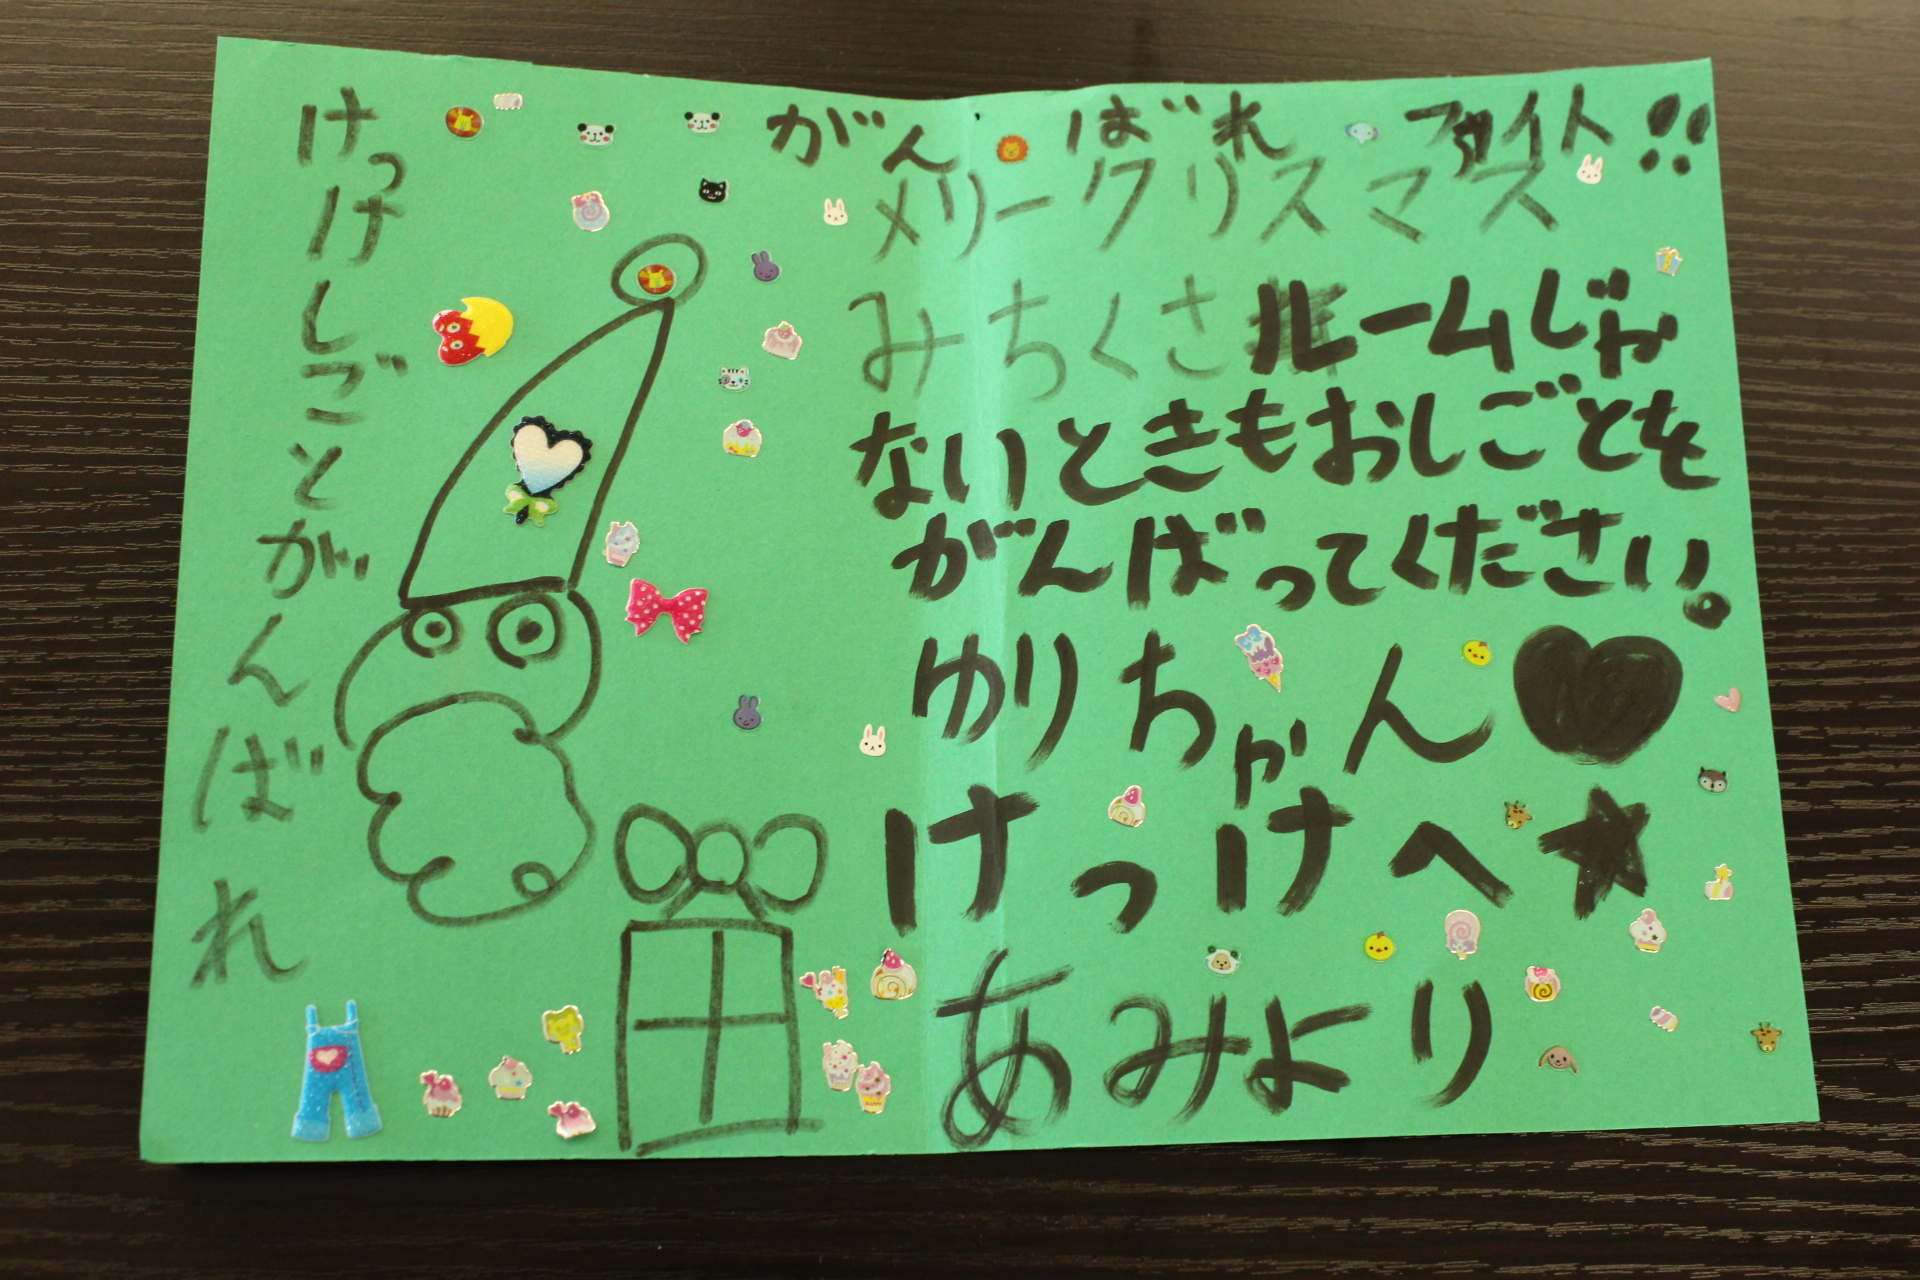 けっけしごとがんばれ
がんばれ ファイト!!
メリークリスマス
みちくさルームじゃ
ないときもおしごとを
がんばってください。
ゆりちゃん♥
けっけへ★
あみより